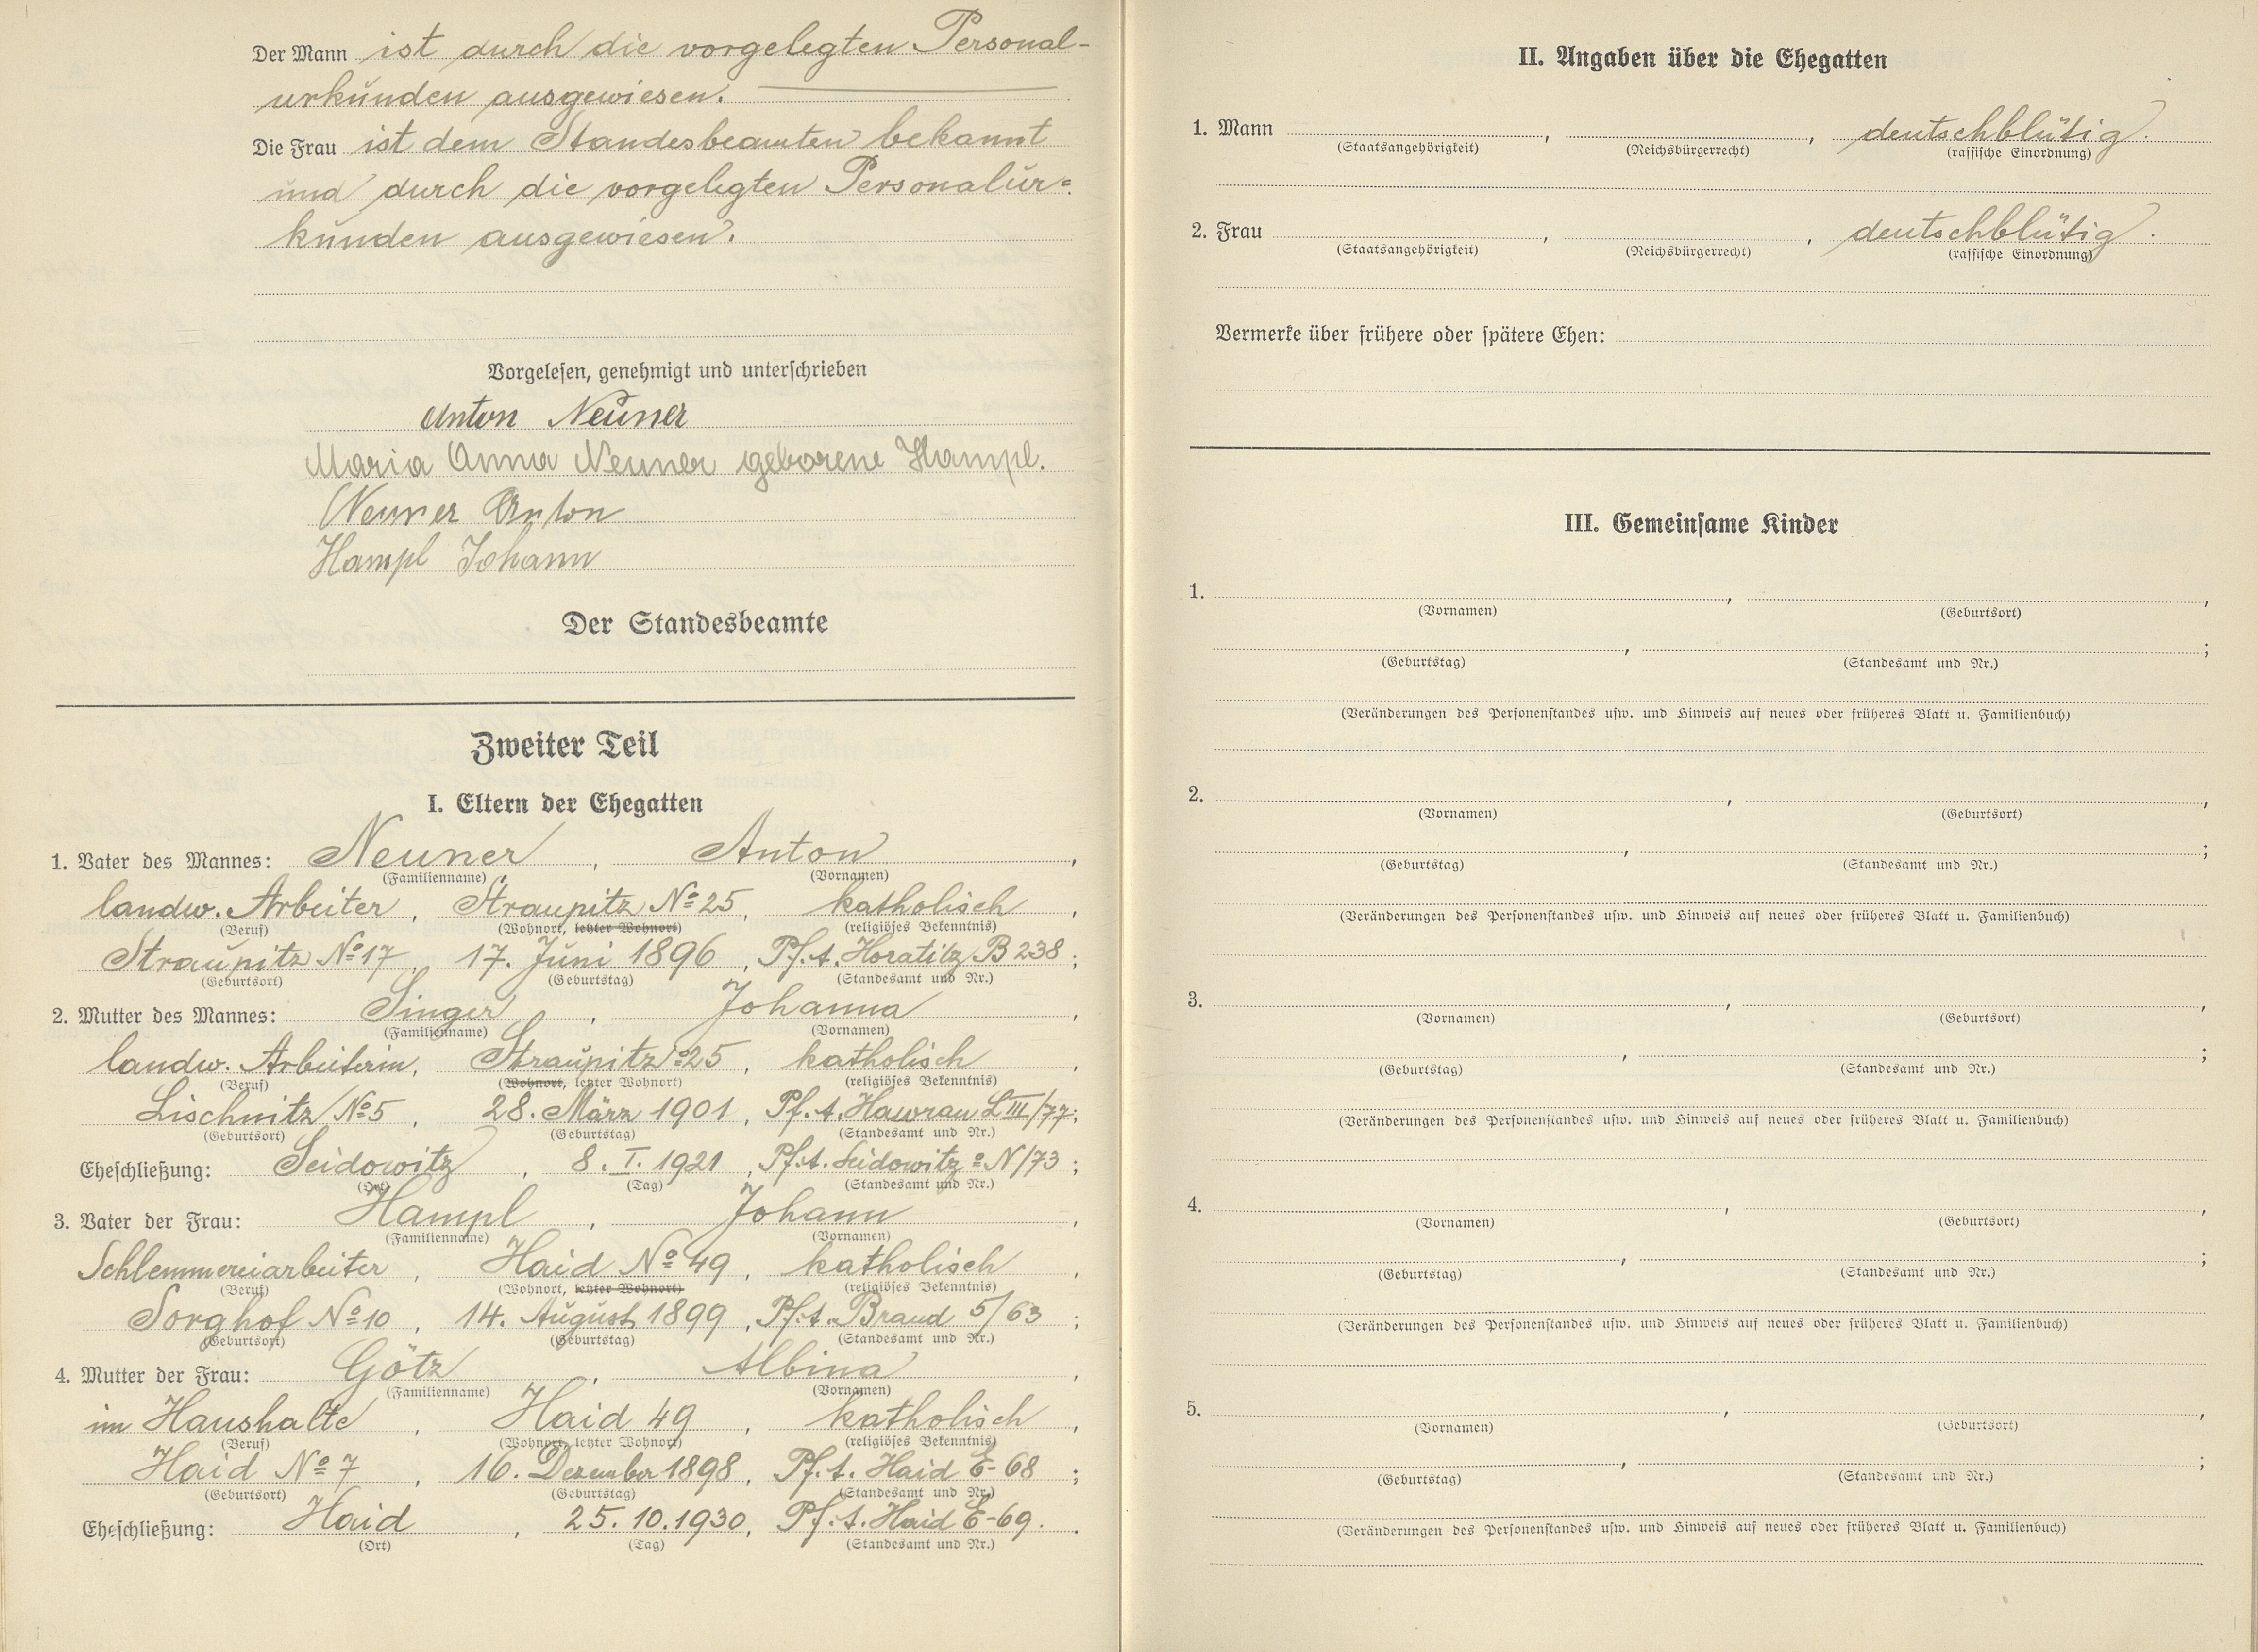 Der Mann ist durch die vorgelegten Personal-
urkunden ausgewiesen.
Die Frau ist dem Standesbeamten bekannt
und durch die vorgelegten Personalur=
kunden ausgewiesen.
Vorgelesen, genehmigt und unterschrieben
Anton Neuner
Maria Anna Neuner geborene Hampl.
Neuner Anton
Hampl Johann
Der Standesbeamte
Zweiter Teil
I. Eltern der Ehegatten
1. Vater des Mannes: Neuner, Anton,
(Familienname) (Vornamen)
landw. Arbeiter, Straupitz No 25, katholisch,
(Beruf) (Wohnort, letzter Wohnort) (religiöses Bekenntnis)
Straupitz No 17, 17. Juni 1896, Pf. A. Horatitz B 238;
(Geburtsort) (Geburtstag) (Standesamt und Nr.)
2. Mutter des Mannes: Singer, Johanna,
(Familienname) (Vornamen)
landw. Arbeiterin, Straupitz No 25, katholisch,
(Beruf) (Wohnort, letzter Wohnort) (religiöses Bekenntnis)
Lischnitz No 5, 28. März 1901, Pf. A. Hawran L III/77;
(Geburtsort) (Geburtstag) (Standesamt und Nr.)
Eheschließung: Seidowitz, 8. I. 1921, Pf. A. Seidowitz N/73;
(Ort) (Tag) (Standesamt und Nr.)
3. Vater der Frau: Hampl, Johann,
(Familienname) (Vornamen)
Schlemmereiarbeiter, Haid No 49, katholisch,
(Beruf) (Wohnort, letzter Wohnort) (religiöses Bekenntnis)
Sorghof No 10, 14. August 1899, Pf. A. Brand 5/63;
(Geburtsort) (Geburtstag) (Standesamt und Nr.)
4. Mutter der Frau: Götz, Albina,
(Familienname) (Vornamen)
im Haushalte, Haid 49, katholisch,
(Beruf) (Wohnort, letzter Wohnort) (religiöses Bekenntnis)
Haid No 7, 16. Dezember 1898, Pf. A. Haid E-68;
(Geburtsort) (Geburtstag) (Standesamt und Nr.)
Eheschließung: Haid, 25. 10. 1930, Pf. A. Haid E-69.
(Ort) (Tag) (Standesamt und Nr.)
II. Angaben über die Ehegatten
1. Mann , , deutschblütig.
(Staatsangehörigkeit) (Reichsbürgerrecht) (rassische Einordnung)
2. Frau , , deutschblütig.
(Staatsangehörigkeit) (Reichsbürgerrecht) (rassische Einordnung)
Vermerke über frühere oder spätere Ehen:
III. Gemeinsame Kinder
1. , ,
(Vornamen) (Geburtsort)
, ;
(Geburtstag) (Standesamt und Nr.)
(Veränderungen des Personenstandes usw. und Hinweis auf neues oder früheres Blatt u. Familienbuch)
2. , ,
(Vornamen) (Geburtsort)
, ;
(Geburtstag) (Standesamt und Nr.)
(Veränderungen des Personenstandes usw. und Hinweis auf neues oder früheres Blatt u. Familienbuch)
3. , ,
(Vornamen) (Geburtsort)
, ;
(Geburtstag) (Standesamt und Nr.)
(Veränderungen des Personenstandes usw. und Hinweis auf neues oder früheres Blatt u. Familienbuch)
4. , ,
(Vornamen) (Geburtsort)
, ;
(Geburtstag) (Standesamt und Nr.)
(Veränderungen des Personenstandes usw. und Hinweis auf neues oder früheres Blatt u. Familienbuch)
5. , ,
(Vornamen) (Geburtsort)
, ;
(Geburtstag) (Standesamt und Nr.)
(Veränderungen des Personenstandes usw. und Hinweis auf neues oder früheres Blatt u. Familienbuch)